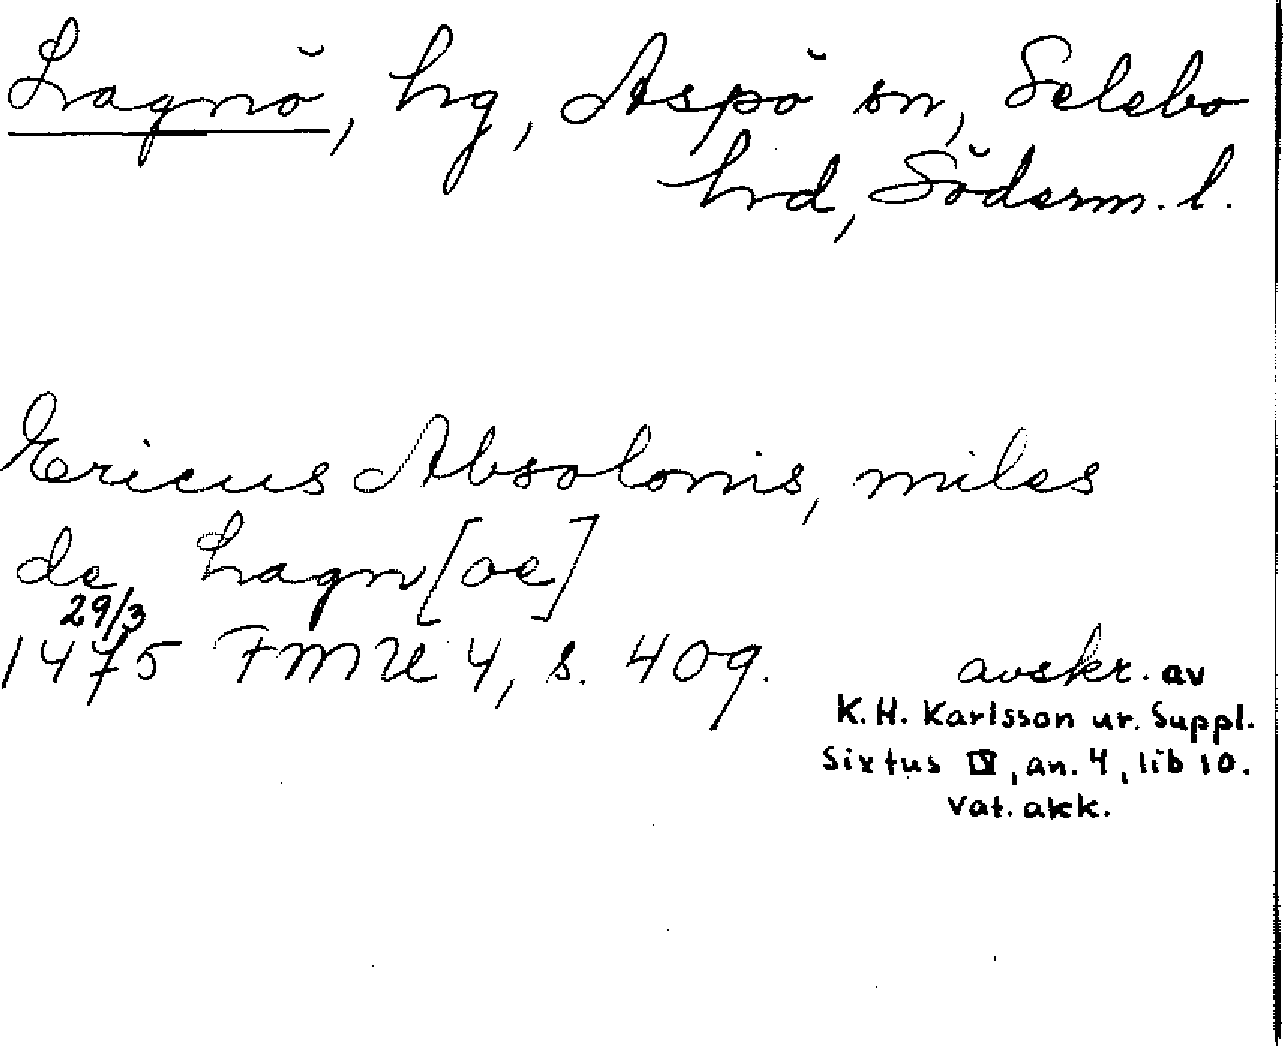 Lagnö, hg, Aspö sn, Selebo
hrd, Söderm. l.
Ericus Absolonis, miles
de Lagn[oe]
29/3
1475 FMU 4, s. 409.
avskr. av
K.H. Karlsson ur. Suppl.
Sixtus IV, an. 4, lib 10.
Vat. akk.